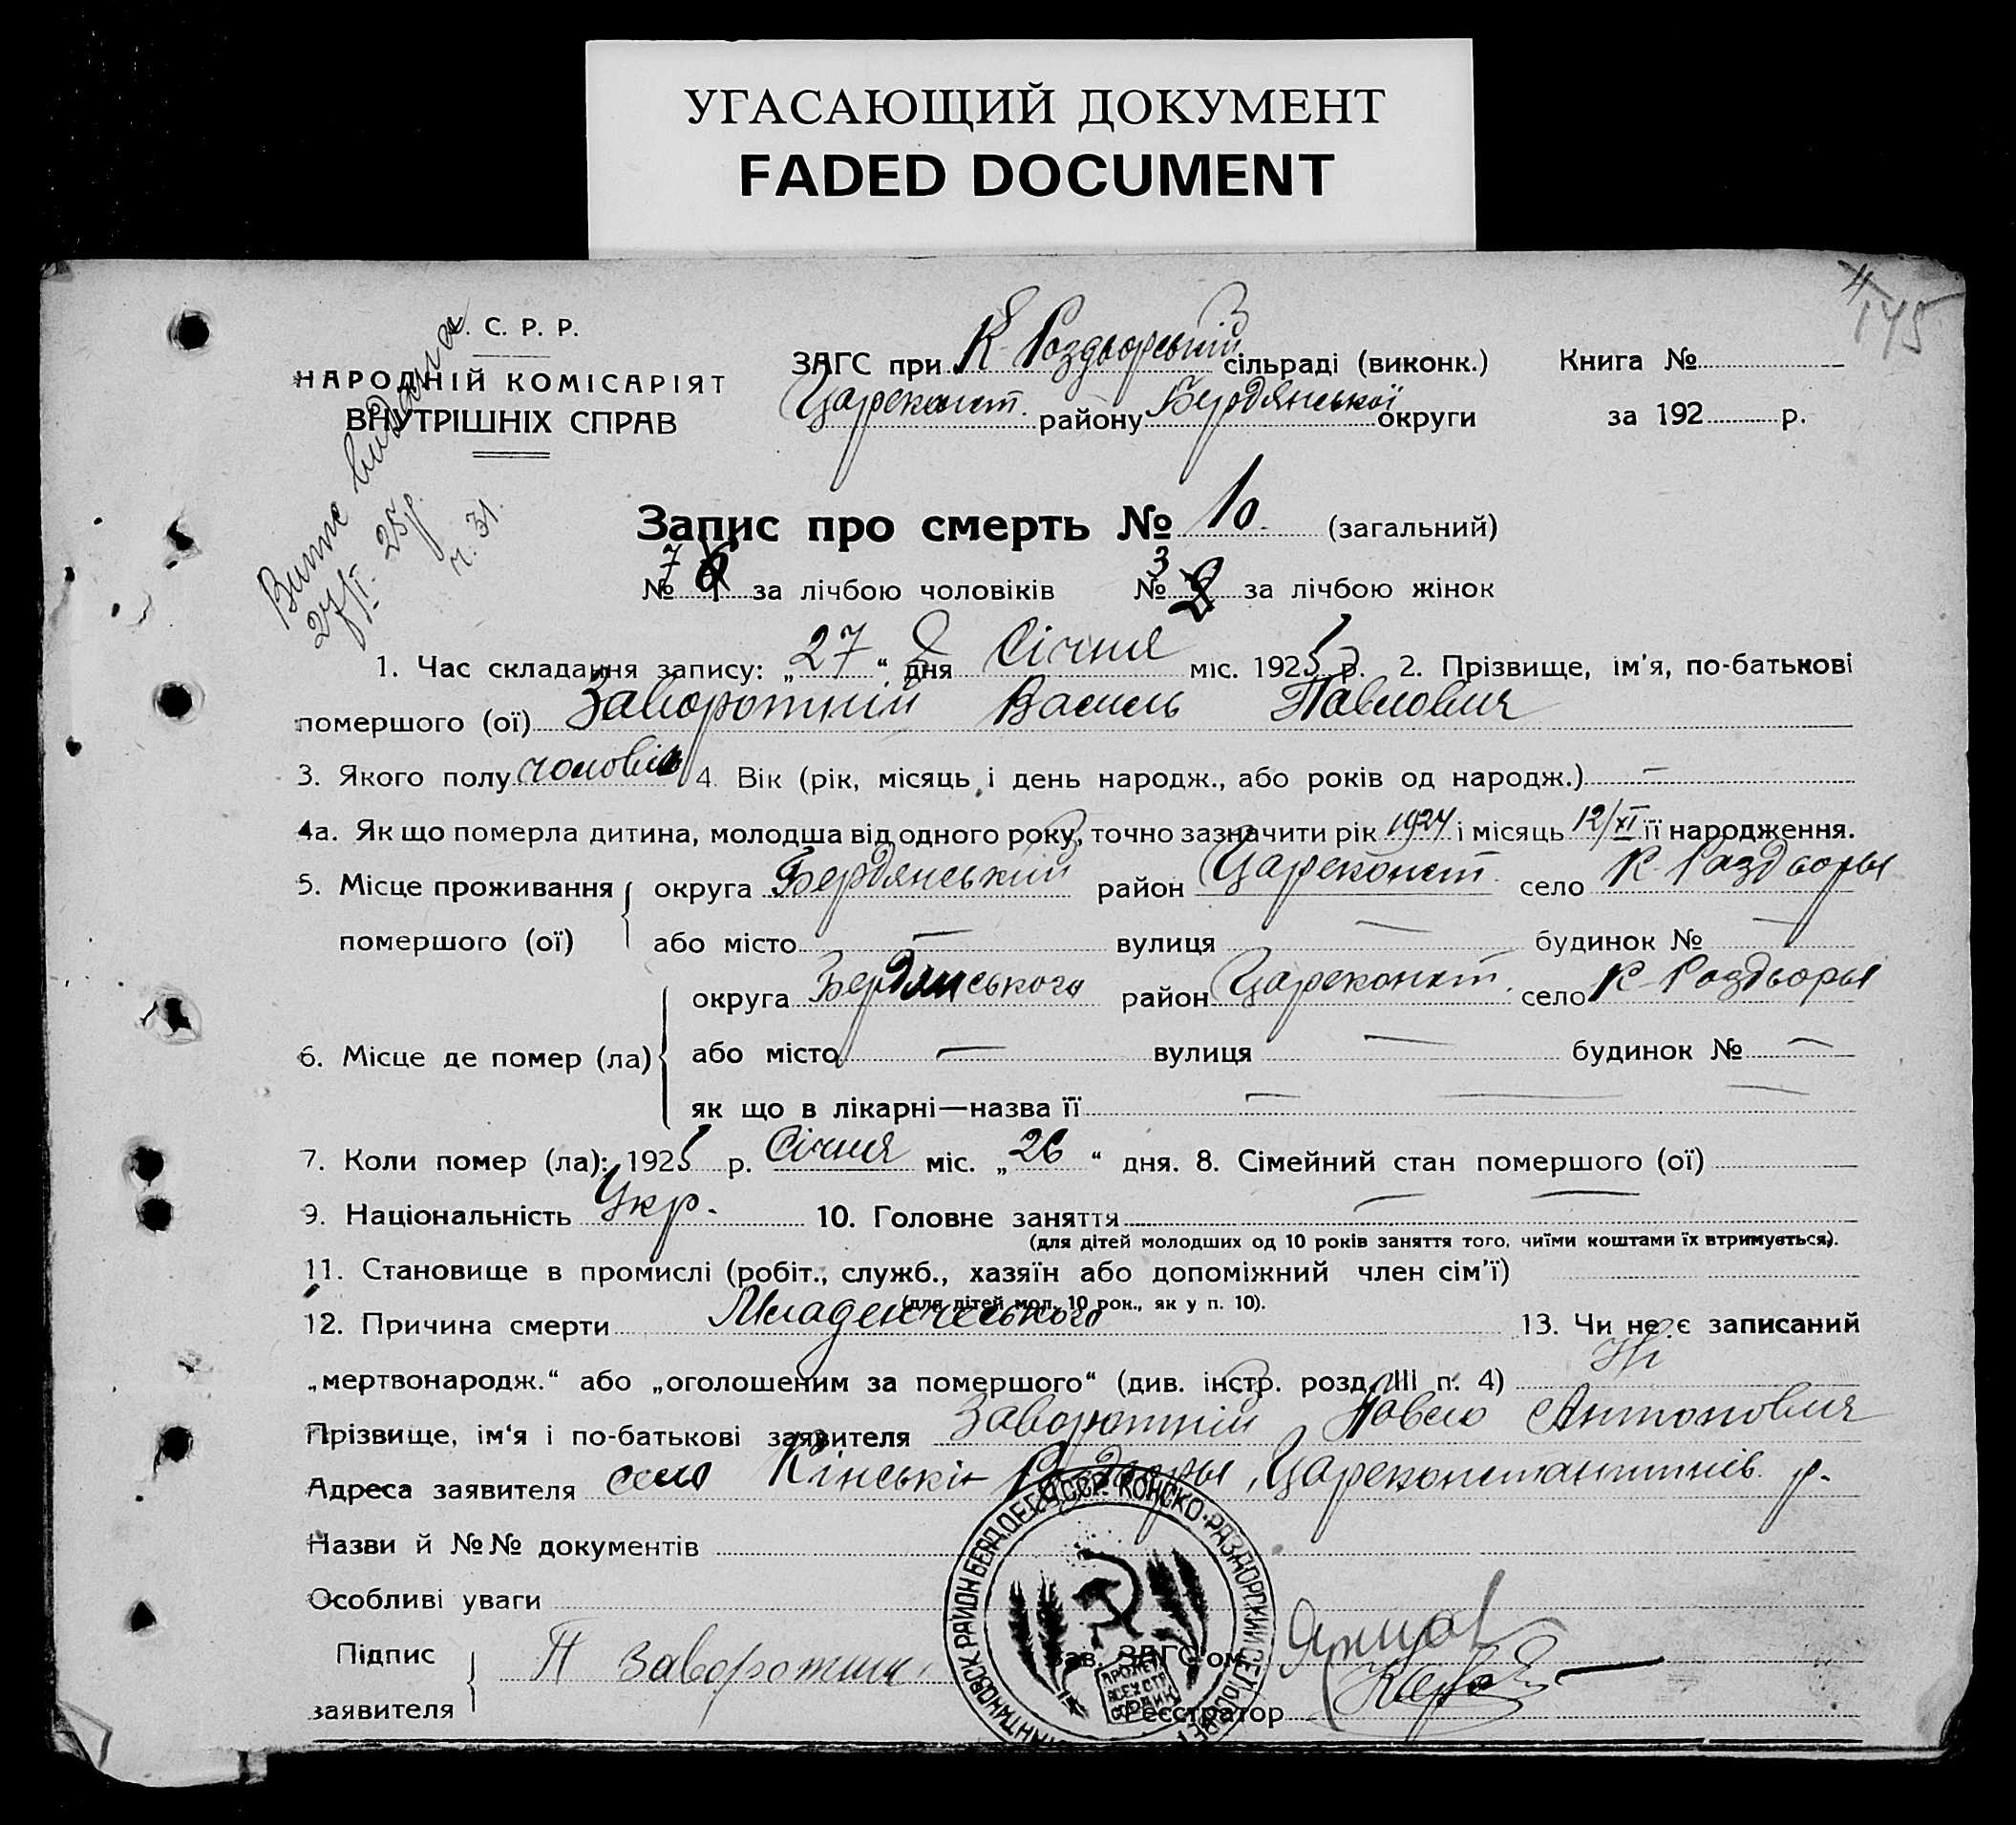 УГАСАЮЩИЙ ДОКУМЕНТ
FADED DOCUMENT
145
. С. Р. Р.
НАРОДНІЙ КОМІСАРІЯТ
ВНУТРІШНІХ СПРАВ
Випис видана
27/I 25р.
ч. 31.
ЗАГС при К-Роздорській сільраді (виконк.)
Книга №
Цареконст. району Бердянської округи
за 192 р.
Запис про смерть № 10 (загальний)
№ 7 за лічбою чоловіків № 3 за лічбою жінок
1. Час складання запису: „27“ дня Січня міс. 1925 р. 2. Прізвище, ім'я, по-батькові
помершого (ої) Заворотній Василь Павлович
3. Якого полу чоловік 4. Вік (рік, місяць і день народж., або років од народж.) —
4а. Як що померла дитина, молодша від одного року, точно зазначити рік 1924 і місяць 12/XI її народження.
5. Місце проживання помершого (ої) округа Бердянський район Цареконст. село К-Раздоры
або місто — вулиця — будинок № —
6. Місце де помер (ла) округа Бердянського район Цареконст. село К-Роздоры
або місто — вулиця — будинок № —
як що в лікарні—назва її — — —
7. Коли помер (ла): 1925 р. Січня міс. „26“ дня. 8. Сімейний стан помершого (ої)
9. Національність Укр. 10. Головне заняття — —
(для дітей молодших од 10 років заняття того, чиїми коштами їх втримується).
11. Становище в промислі (робіт., служб., хазяїн або допоміжний член сім'ї)
(для дітей мол. 10 рок., як у п. 10).
12. Причина смерти Младенческого 13. Чи не є записаний
„мертвонародж.“ або „оголошеним за помершого“ (див. інстр. розд. III п. 4) Ні
Прізвище, ім'я і по-батькові заявителя Заворотній Павло Антонович
Адреса заявителя село Кінські Роздоры, Цареконстантинів. р.
Назви й №№ документів
Особливі уваги
Підпис заявителя П Заворотний
Зав. ЗАГС'ом
Реєстратор
КОНСКО-РАЗДОРСКИЙ СЕЛ
РАЙОН БЕРД.
ПРОЛЕТ ВСЕХ СТР